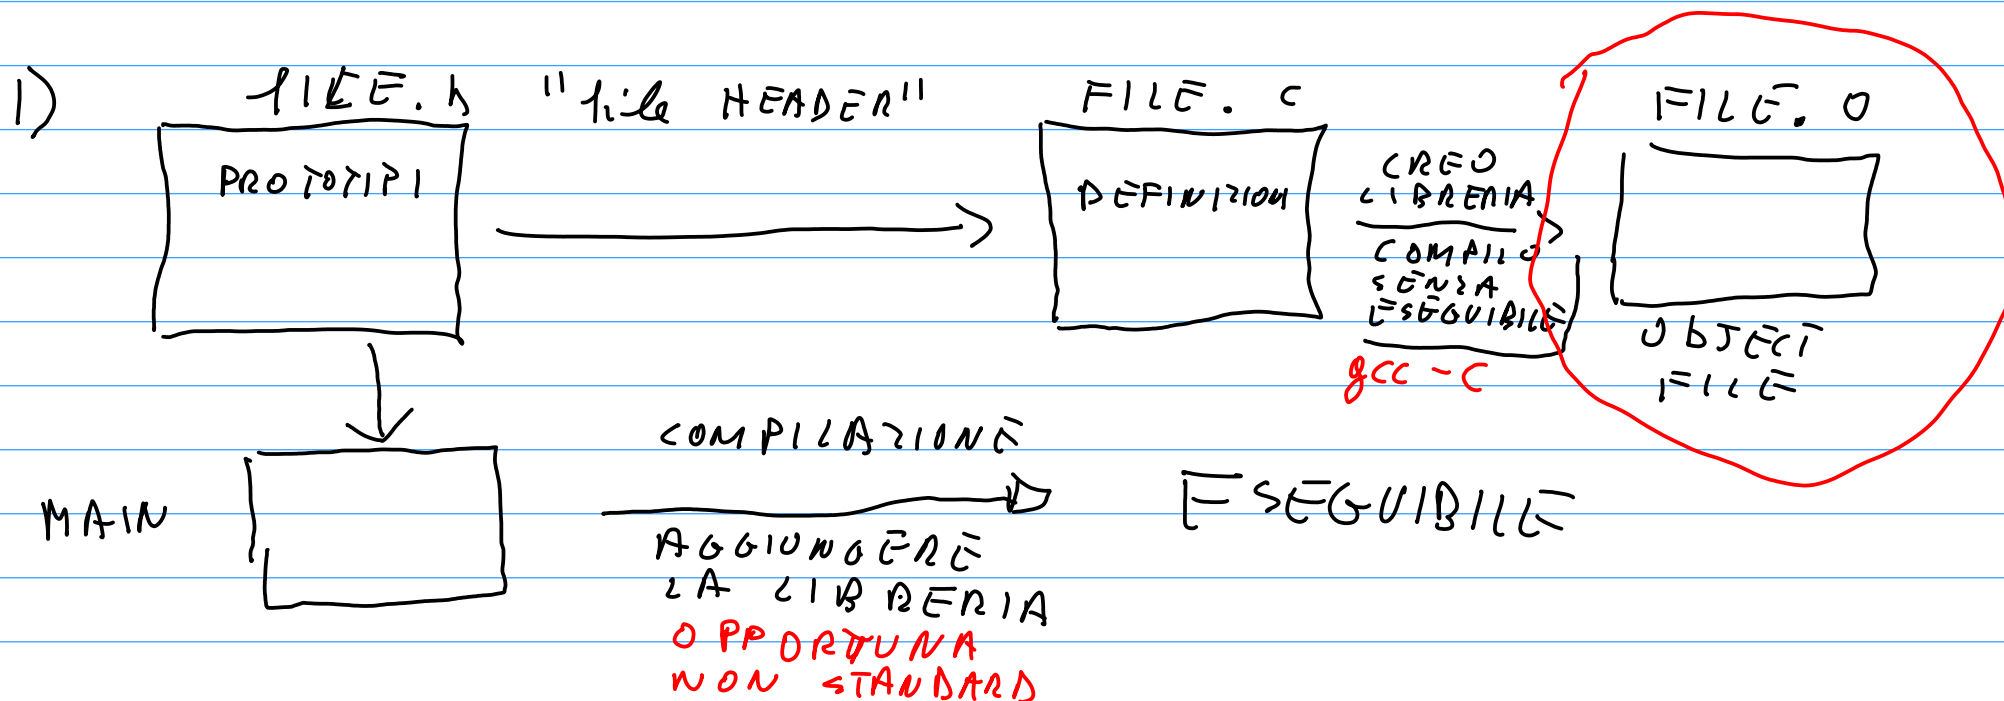 1) FILE.h "file HEADER" FILE.c FILE.O
PROTOTIPI
DEFINIZIONI
CREO
LIBRERIA
COMPILO
SENZA
ESEGUIBILE
gcc -c
OBJECT
FILE
MAIN
COMPILAZIONE
AGGIUNGERE
LA LIBRERIA
OPPORTUNA
NON STANDARD
ESEGUIBILE